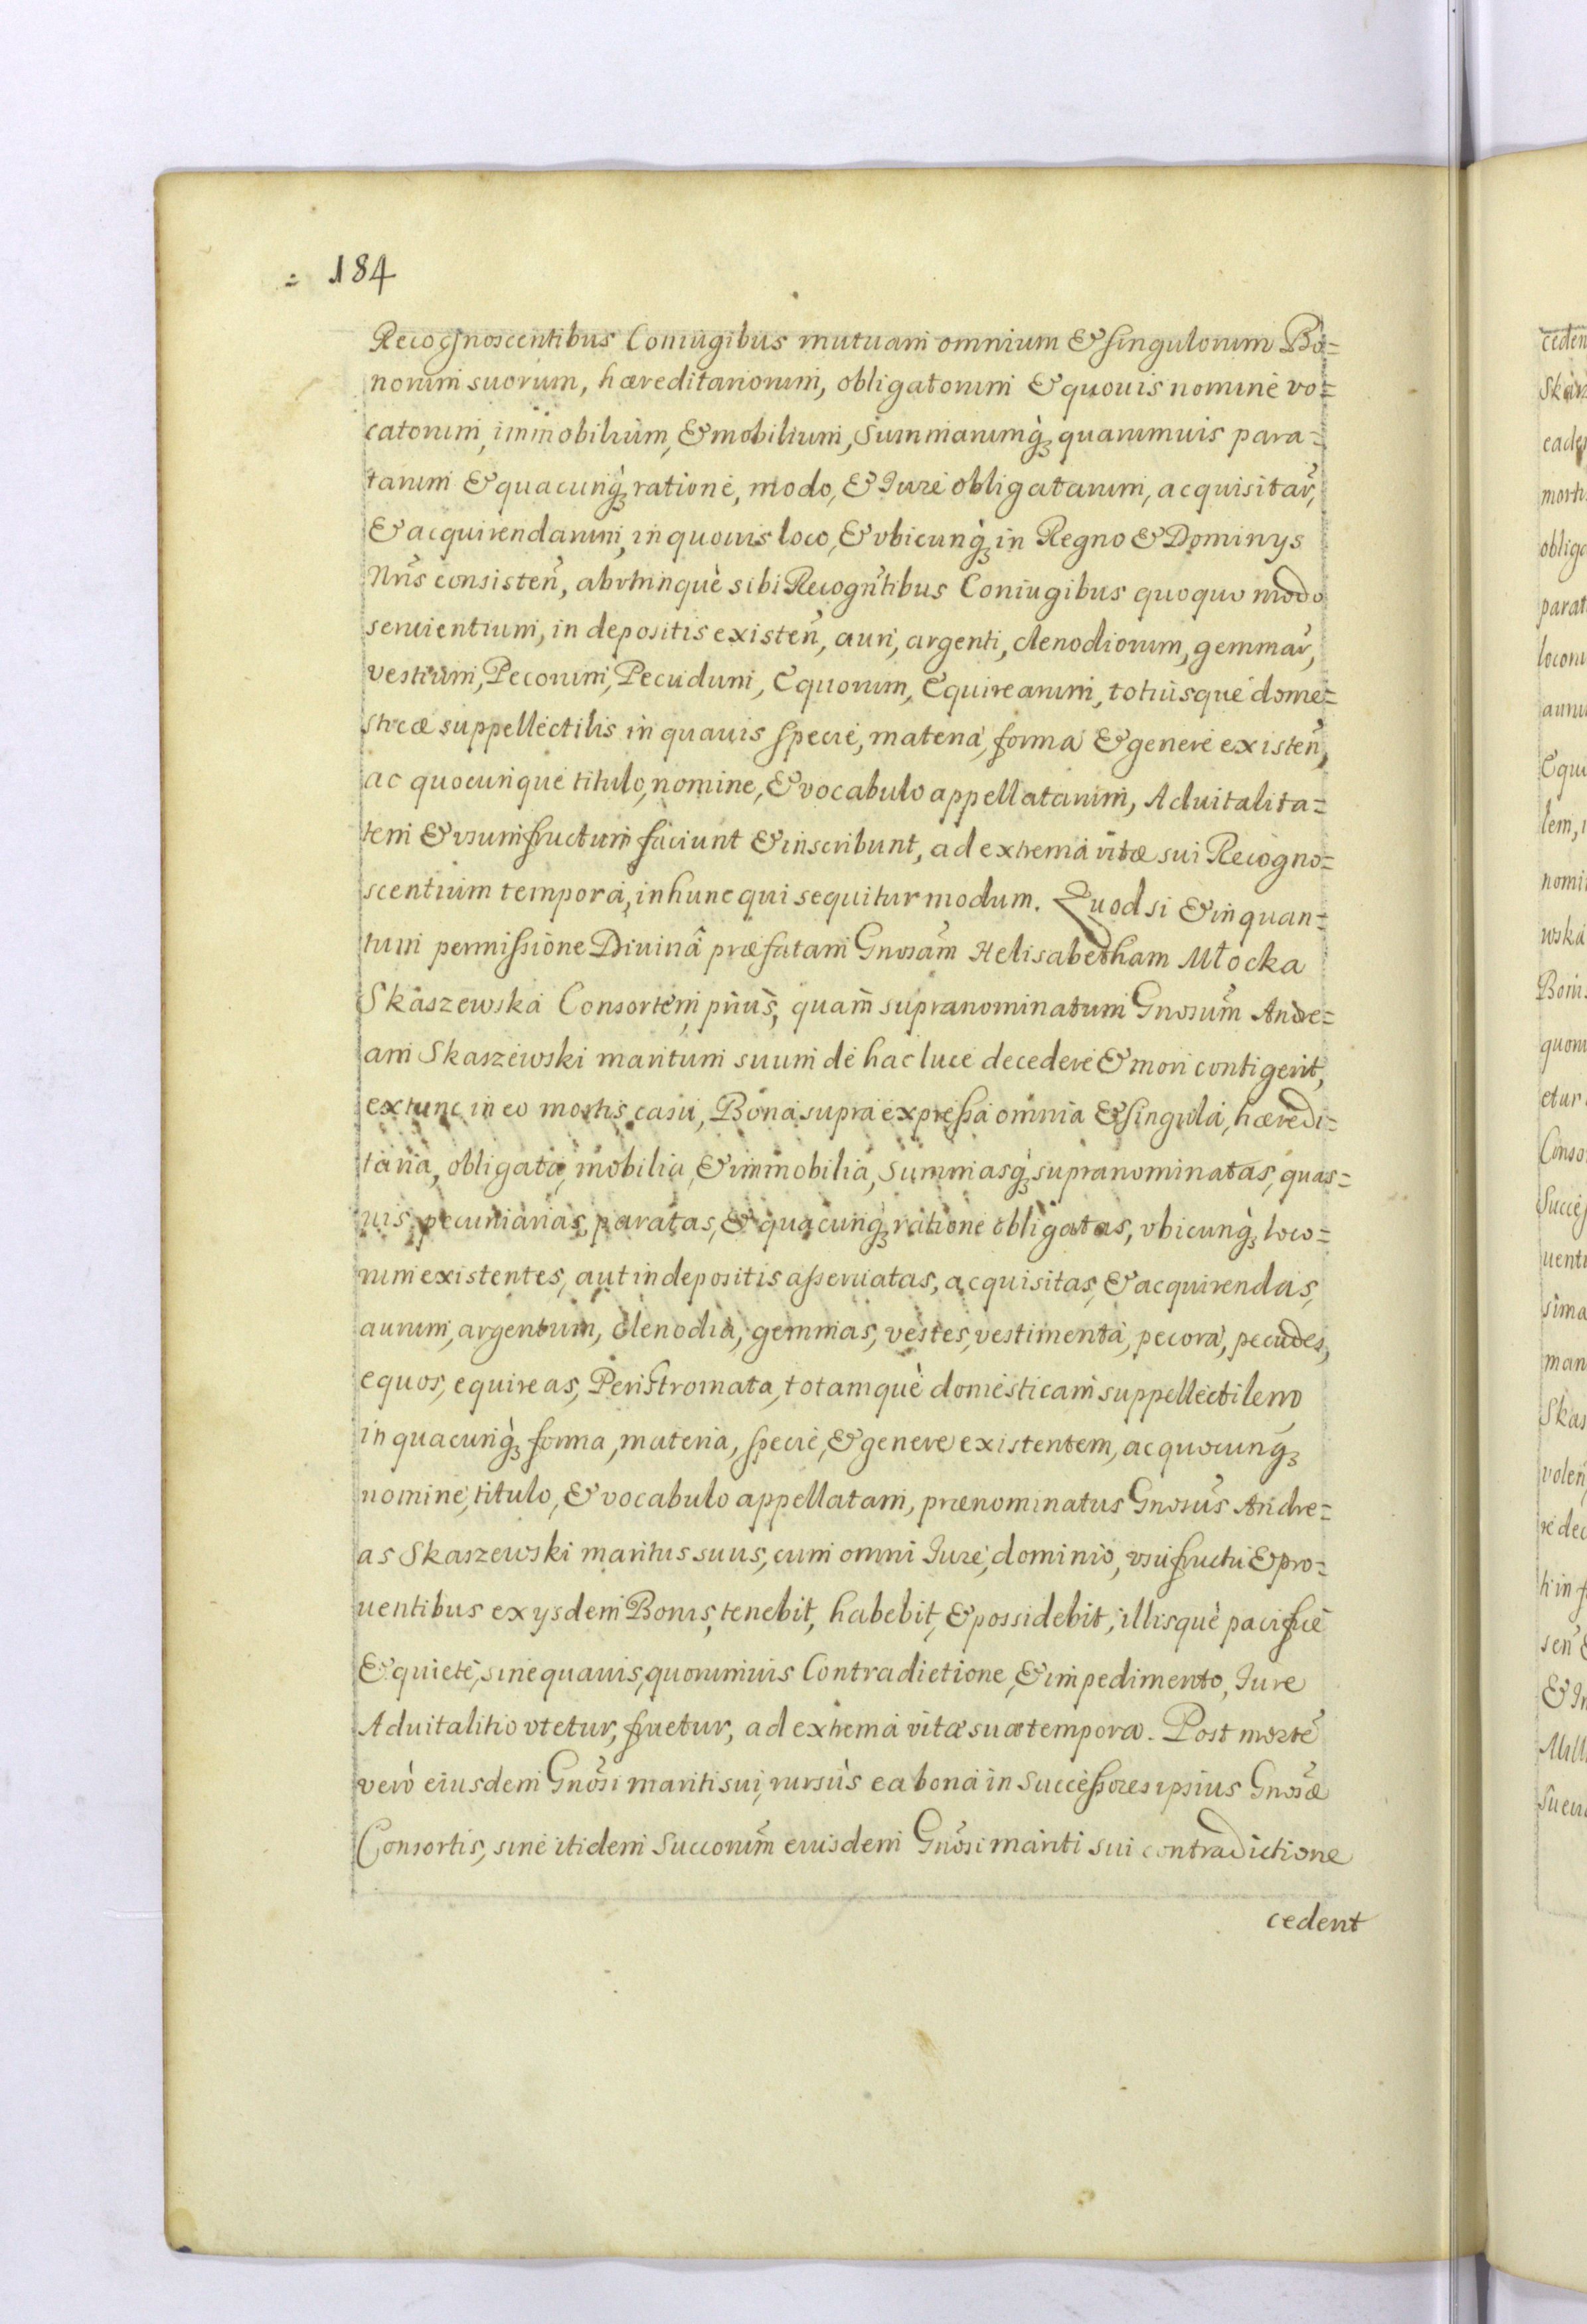 184
Recognoscentibus Coniugibus mutuam omnium & singulorum Bo=
norum suorum, hæreditariorum, obligatorum & quouis nomine vo=
catorum, immobilium, & mobilium, Summarumq́ꝫ quarumuis para=
tarum & quacunq́ꝫ ratione, modo, & Iure obligatarum, acquisitar̃,
& acquirendarum, in quouis loco, & vbicunq́ꝫ in Regno & Dominys
Nr̃is consisten̄, abvtrinquè sibi Recogn̄tibus Coniugibus quoquo modo
seruientium, in depositis existen̄, auri, argenti, clenodiorum, gemmar̃,
vestium, Pecorum, Pecudum, Equorum, Equirearum, totiusque dome=
sticæ suppellectilis in quauis specie, materia, forma & genere existen̄,
ac quocunque titulo, nomine, & vocabulo appellatarum, Aduitalita=
tem & vsumfructum faciunt & inscribunt, ad extrema vitæ sui Recogno=
scentium tempora, in hunc qui sequitur modum. Quod si & in quan=
tum permissione Diuinâ præfatam Gnosam̃ Helisabetham Młocka
Skaszewska Consortem, priùs, quam̀ supranominatum Gnosum̃ Andre=
am Skaszewski maritum suum de hac luce decedere & mori contigerit,
extunc in eo mortis casu, Bona supra expressa omnia & singula, hæredi=
taria, obligata, mobilia, & immobilia, Summasq́ꝫ supranominatas, quas=
uis, pecuniarias, paratas, & quacunq́ꝫ ratione obligatas, vbicunq́ꝫ loco=
rum existentes, aut in depositis asseruatas, acquisitas, & acquirendas,
aurum, argentum, clenodia, gemmas, vestes, vestimenta, pecora, pecudes,
equos, equireas, Peristromata, totamquè domesticam suppellectilem
in quacunq́ꝫ forma, materia, specie, & genere existentem, ac quocunq́ꝫ
nomine, titulo, & vocabulo appellatam, prænominatus Gnosus̃ Andre=
as Skaszewski maritus suus, cum omni Iure, dominio, vsufructu & pro=
uentibus ex ysdem Bonis, tenebit, habebit, & possidebit, illisquè pacificè
& quietè, sine quauis, quorumuis Contradictione, & impedimento, Iure
Aduitalitio vtetur, fruetur, ad extrema vitæ suæ tempora. Post mortẽ
verò eiusdem Gnõsi mariti sui, rursùs ea bona in Successores ipsius Gnosæ̃
Consortis, sine itidem Succorum̃ eiusdem Gnõsi mariti sui contradictione
cedent